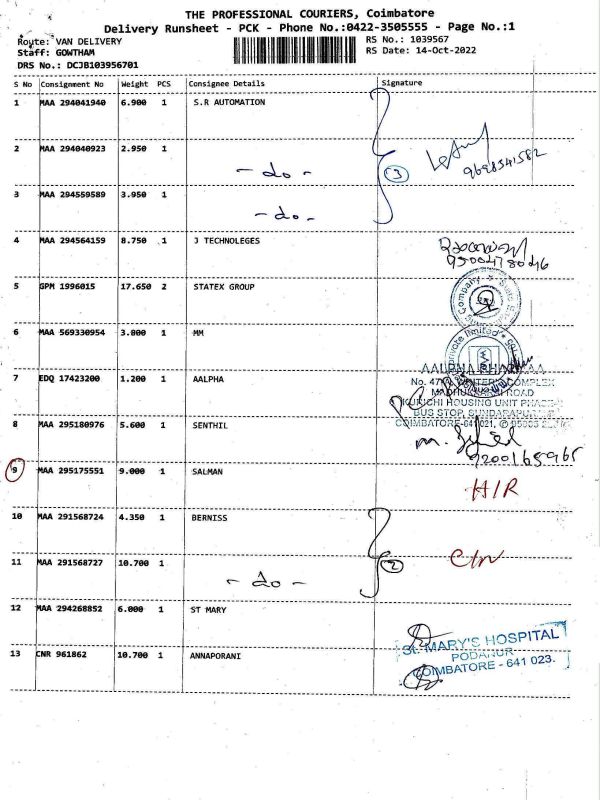 THE PROFESSIONAL COURIERS, Coimbatore
Delivery Runsheet - PCK - Phone No.:0422-3505555 - Page No.:1
Route: VAN DELIVERY
RS No.: 1039567
Staff: GOWTHAM
RS Date: 14-Oct-2022
DRS No.: DCJB103956701
S No Consignment No Weight PCS Consignee Details Signature
1 MAA 294041940 6.900 1 S.R AUTOMATION
2 MAA 294040923 2.950 1
- do -
3
9698541582
3 MAA 294559589 3.950 1
- do -
4 MAA 294564159 8.750 1 J TECHNOLEGES
9500478046
5 GPM 1996015 17.650 2 STATEX GROUP
6 MAA 569330954 3.800 1 MM
7 EDQ 17423200 1.200 1 AALPHA
MADHUKKARAI ROAD
KURICHI HOUSING UNIT PHASE
BUS STOP, SUNDARAPURAM
COIMBATORE-641 021,
8 MAA 295180976 5.600 1 SENTHIL
9200165965
9 MAA 295175551 9.000 1 SALMAN
H/R
10 MAA 291568724 4.350 1 BERNISS
11 MAA 291568727 10.700 1
- do -
2
12 MAA 294268852 6.000 1 ST MARY
St. MARY'S HOSPITAL
PODANUR
COIMBATORE - 641 023.
13 CNR 961862 10.700 1 ANNAPORANI